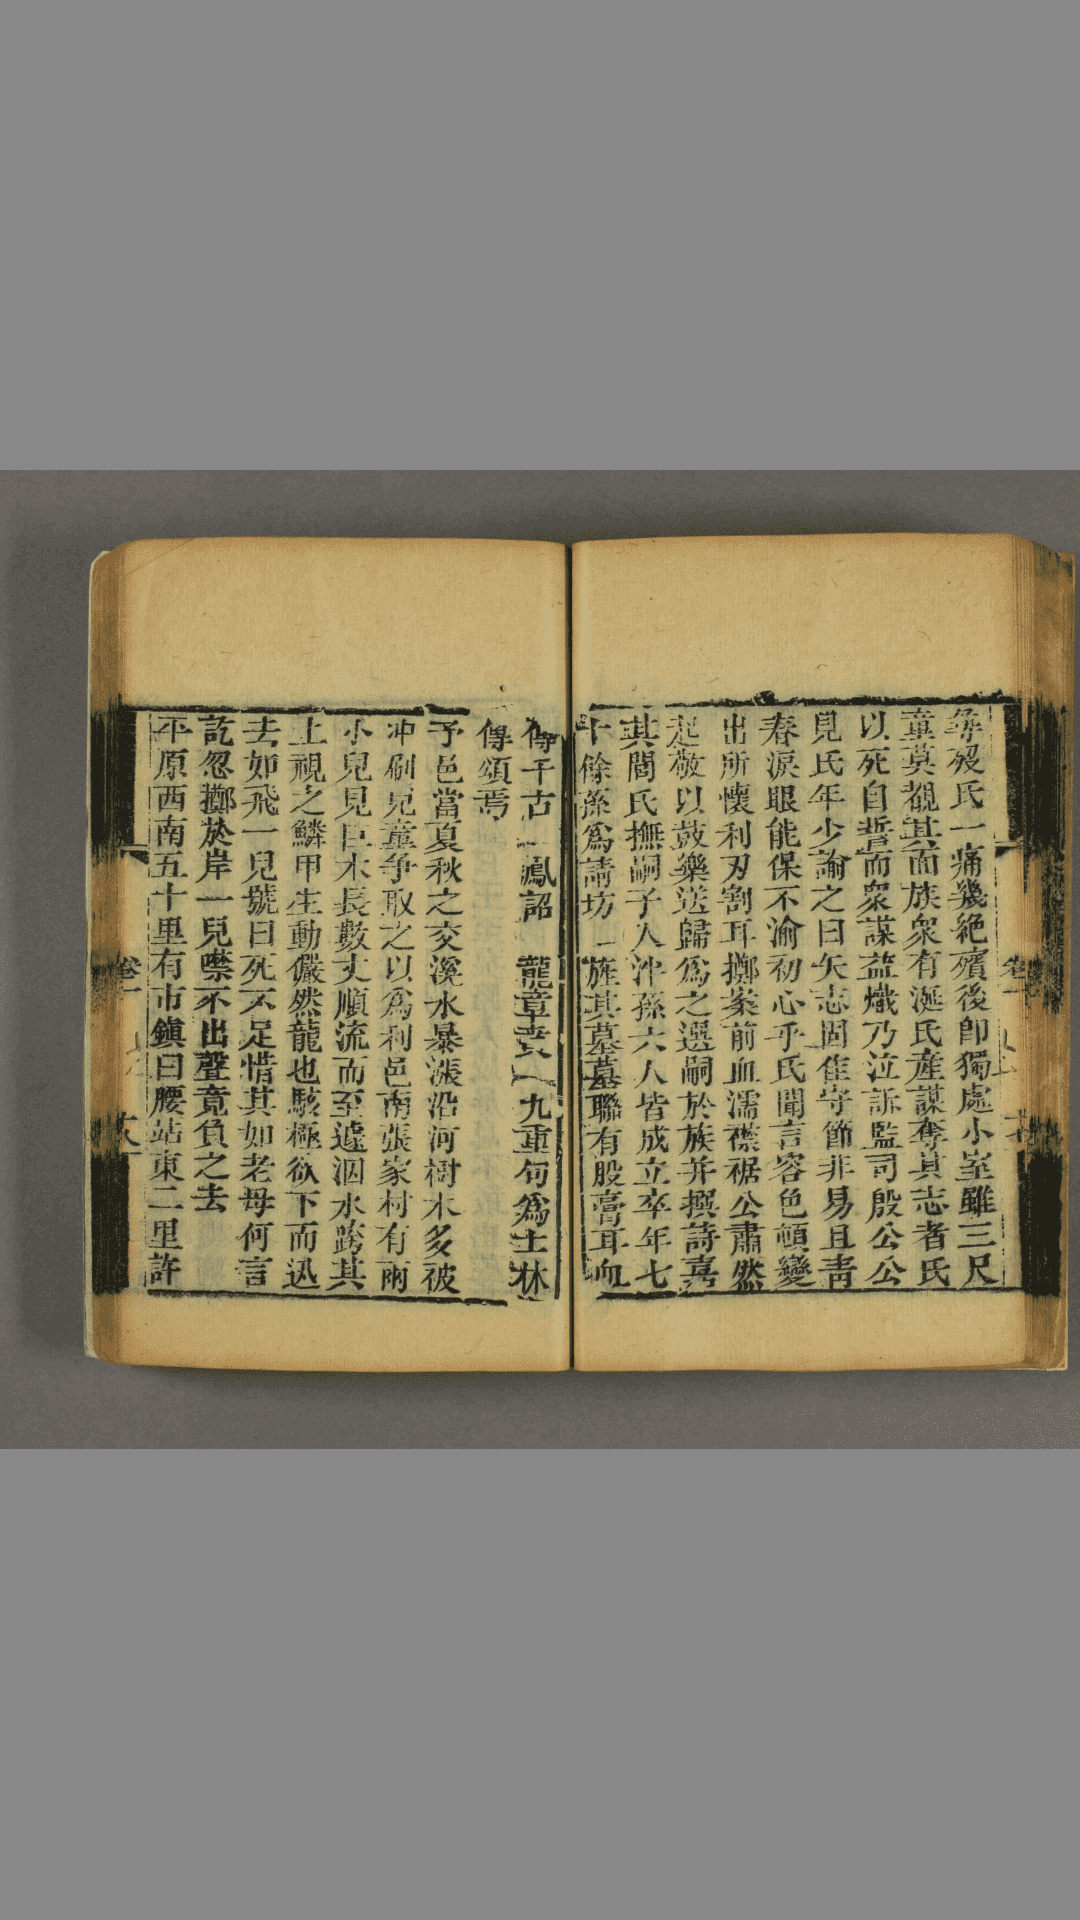 彝歿氏一痛幾絶殯後卽獨處小室雖三尺
童莫覩其面族衆有涎氏産謀奪其志者氏
以死自誓而衆謀益熾乃泣訴監司殷公公
見氏年少諭之曰矢志固佳守節非易且靑
春淚眼能保不渝初心乎氏聞言容色頓變
出所懷利刃割耳擲案前血濡襟裾公肅然
起敬以鼓樂送歸爲之選嗣於族并撰詩嘉
其閭氏撫嗣子入泮孫六人皆成立卒年七
十餘孫爲請坊 旌其墓墓聯有股膏耳血
傳千古 鳳詔 龍章 九重句爲士林
傳頌焉
予邑當夏秋之交溪水暴漲沿河樹木多被
冲刷兒童争取之以爲利邑南張家村有兩
小兒見巨木長數丈順流而至遽泅水跨其
上視之鱗甲生動儼然龍也駭極欲下而迅
去如飛一兒號曰死不足惜其如老母何言
訖忽擲於岸一兒噤不出聲竟負之去
平原西南五十里有市鎭曰腰站東二里許
卷一
卷一